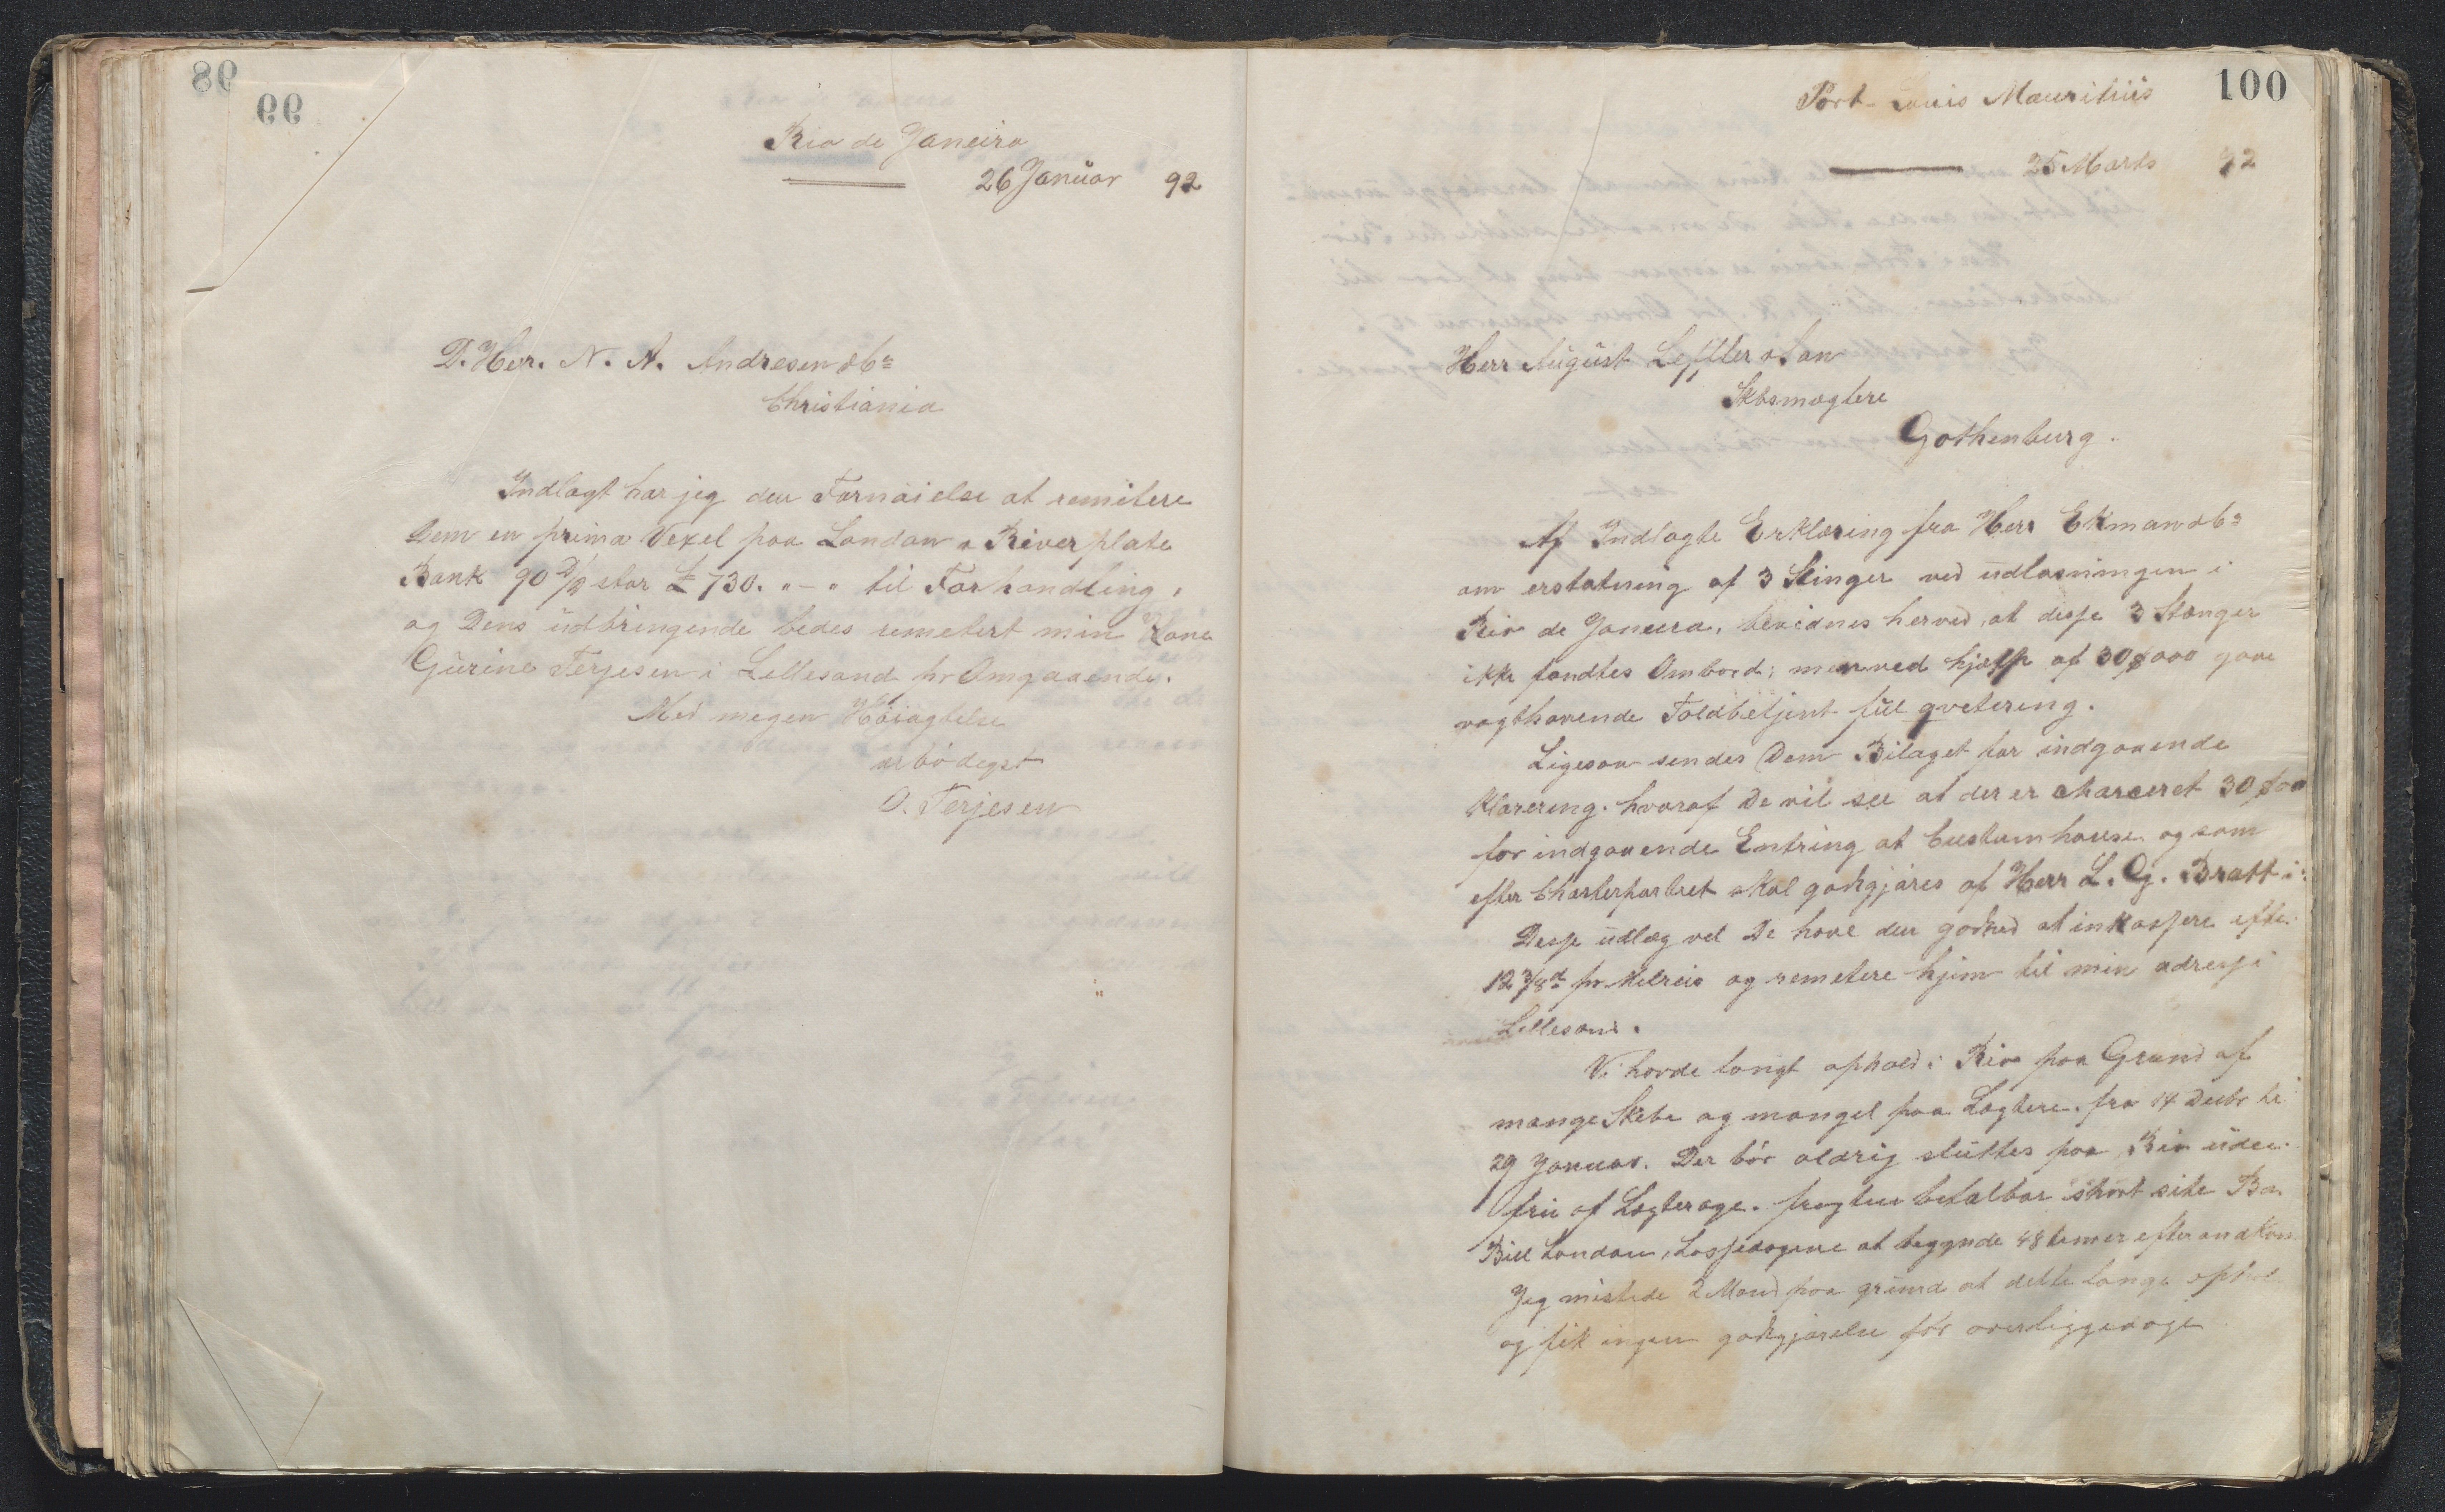 Rio de Janeiro
26 Januar 92
D. Herr. N. A. Andresen & Co
Christiania
Indlagt har jeg den Fornøielse at remitere
Dem en prima Vexel paa London & River plate
Bank 90 d/s stor £ 730. "-" til Forhandling,
og Dens udbringende bedes remetert min Kone
Gurine Terjesen i Lillesand pr Omgaaende.
Med megen Høiagtelse
ærbødigst
O. Terjesen
100
Port-Louis Mauritius
25 Marts 92
Herr August Leffler & Son
Skbsmæglere
Gothenburg.
Af Indlagte Erklæring fra Herr Ekman & Co
om erstatning af 3 Stinger ved udlosningen i
Rio de Janeiro, bevidnes herved, at disse 3 Stænger
ikke fandtes Ombord; men ved hjælp af 30$000 gave
vagthavende Toldbetjent full qvitering.
Ligesaa sendes Dem Bilaget for indgaaende
Klarering. hvoraf De vil see at der er charceret 30$000
for indgaaende Entring at Custumhouse og som
efter Charterpartiet skal godtgjøres af Herr L. G. Bratt i
Disse udlæg vel De have den godhed at inkassere efter
12 3/8 d pr Milreis og remetere hjem til min adresse i
Lillesand.
Vi havde langt ophold i Rio paa Grund af
mange Skibe og mangel paa Lægtere. fra 14 Decbr til
29 Januar. Der bör aldrig sluttes paa Rio uden
frie af Lægterage. fragten betalbar short site
Bill London, Lossedagene at begynde 48 timer efter ankom
Jeg mistede 2 Mand paa grund at dette lange ophol
og fik ingen godtgjørelse før overliggedage